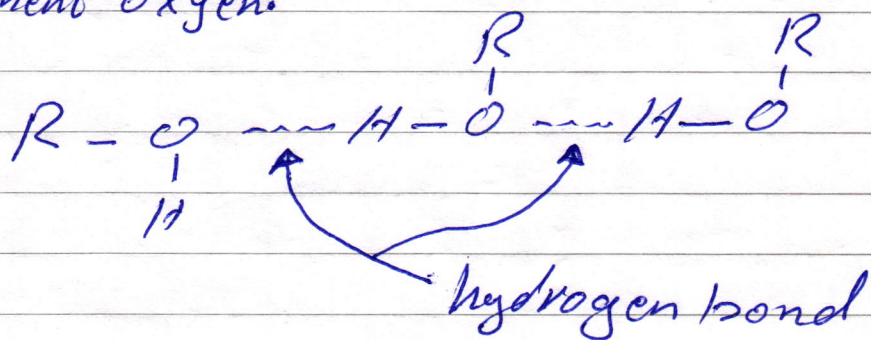 oxygen.
R R
R - O ---- H - O ---- H - O
H
hydrogen bond